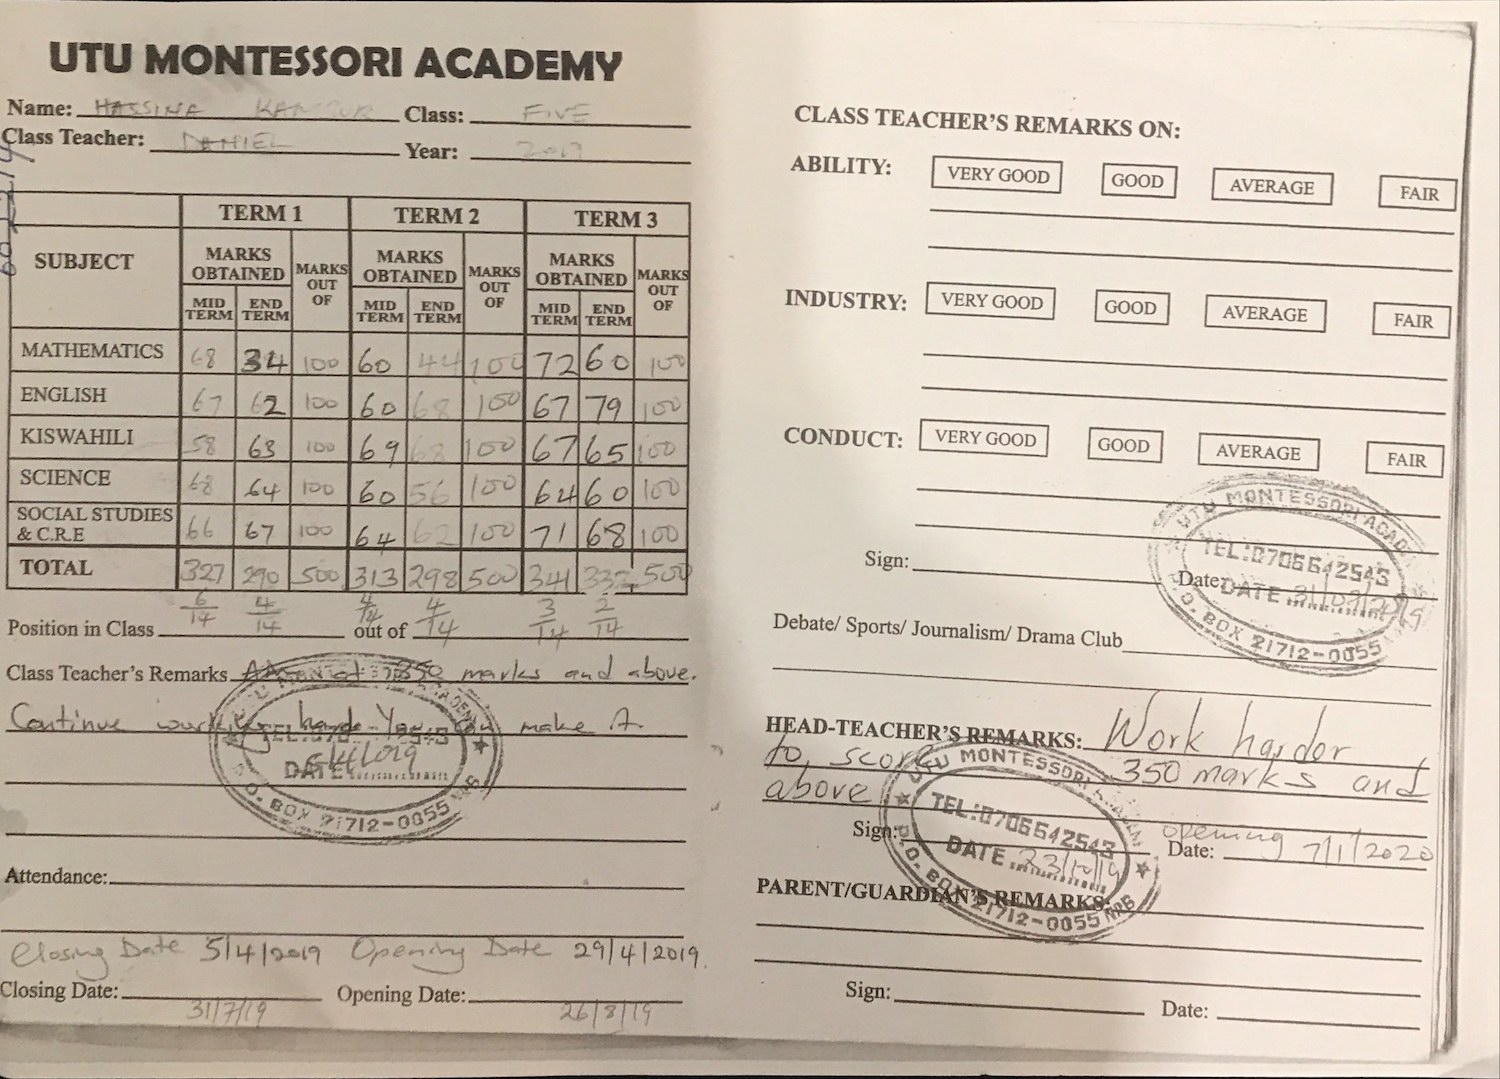 UTU MONTESSORI ACADEMY
Name: HASSINA Class: FIVE
Class Teacher: DANIEL Year: 2019
SUBJECT TERM 1 TERM 2 TERM 3
MARKS OBTAINED MARKS OUT OF MARKS OBTAINED MARKS OUT OF MARKS OBTAINED MARKS OUT OF
MID TERM END TERM MID TERM END TERM MID TERM END TERM
MATHEMATICS 68 34 100 60 44 100 72 60 100
ENGLISH 67 62 100 60 68 100 67 79 100
KISWAHILI 58 63 100 69 68 100 67 65 100
SCIENCE 68 64 100 60 56 100 64 60 100
SOCIAL STUDIES & C.R.E 66 67 100 64 62 100 71 68 100
TOTAL 327 290 500 313 298 500 341 332 500
Position in Class 6/14 4/14 out of 4/14 4/14 3/14 2/14
Class Teacher's Remarks 350 marks and above.
Continue working hard. You can make it.
UTU MONTESSORI ACADEMY
DATE
P.O. BOX 21712-0055 NRB
Attendance:
Closing Date 5/4/2019 Opening Date 29/4/2019.
Closing Date: Opening Date:
31/7/19 26/8/19
CLASS TEACHER'S REMARKS ON:
ABILITY: VERY GOOD GOOD AVERAGE FAIR
INDUSTRY: VERY GOOD GOOD AVERAGE FAIR
CONDUCT: VERY GOOD GOOD AVERAGE FAIR
UTU MONTESSORI ACAD
TEL:0706642543
Sign: Date:
DATE 31/07/2019
P.O. BOX 21712-0055
Debate/ Sports/ Journalism/ Drama Club
HEAD-TEACHER'S REMARKS: Work harder
to score 350 marks and
above
UTU MONTESSORI ACADEMY
TEL:0706642543
Sign: opening Date: 7/1/2020
DATE 23/10/19
P.O. BOX 21712-0055 NRB
PARENT/GUARDIAN'S REMARKS:
Sign: Date: